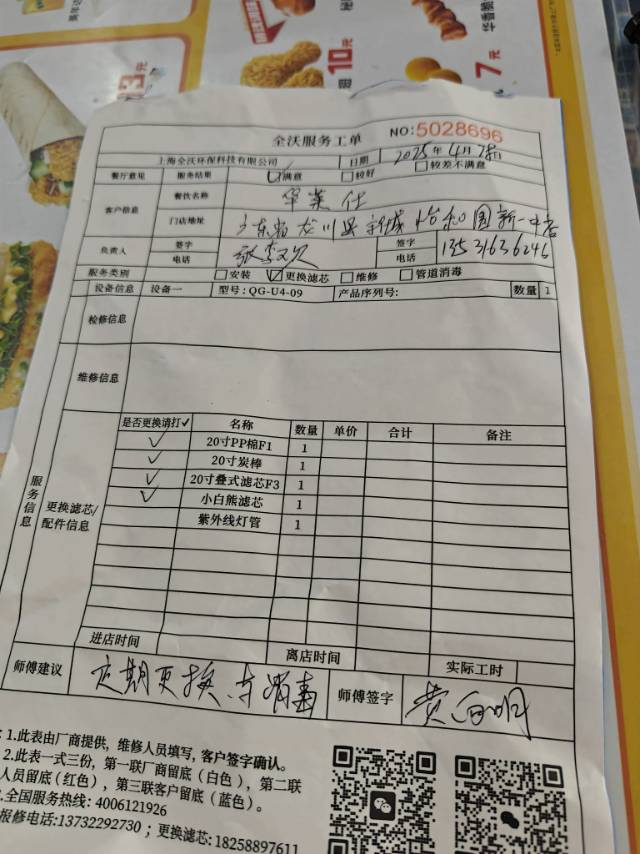 13元
10元
7元
全沃服务工单
NO:5028696
上海全沃环保科技有限公司 日期 2025年4月28日
餐厅意见 服务结果 ☑满意 □较好 □较差不满意
客户信息 餐饮名称 华莱仕
门店地址 广东省龙川县新城怡和园新一中店
负责人 签字 签字
电话 电话 13531636246
服务类别 □安装 ☑更换滤芯 □维修 □管道消毒
设备信息 设备一 型号:QG-U4-09 产品序列号: 数量 1
检修信息
维修信息
服务信息
更换滤芯/配件信息
是否更换请打✓ 名称 数量 单价 合计 备注
✓ 20寸PP棉F1 1
✓ 20寸炭棒 1
✓ 20寸叠式滤芯F3 1
✓ 小白熊滤芯 1
紫外线灯管 1
进店时间 离店时间 实际工时
师傅建议 定期更换与消毒 师傅签字
:1.此表由厂商提供，维修人员填写，客户签字确认。
2.此表一式三份，第一联厂商留底（白色），第二联
人员留底（红色），第三联客户留底（蓝色）。
.全国服务热线：4006121926
报修电话:13732292730；更换滤芯:18258897611